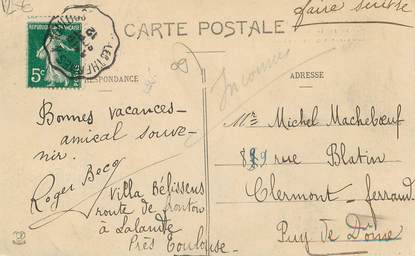 faire suivre
CARTE POSTALE
5c
RESPONDANCE
ADRESSE
Inconnu
Bonnes vacances-
amical souve-
nir.
Roger Bocq
Villa Bélisseus
route de fronton
à Lalande
Près Toulouse-
Mr Michel Machebœuf
rue Blatin
Clermont-ferrand
Puy de Dôme